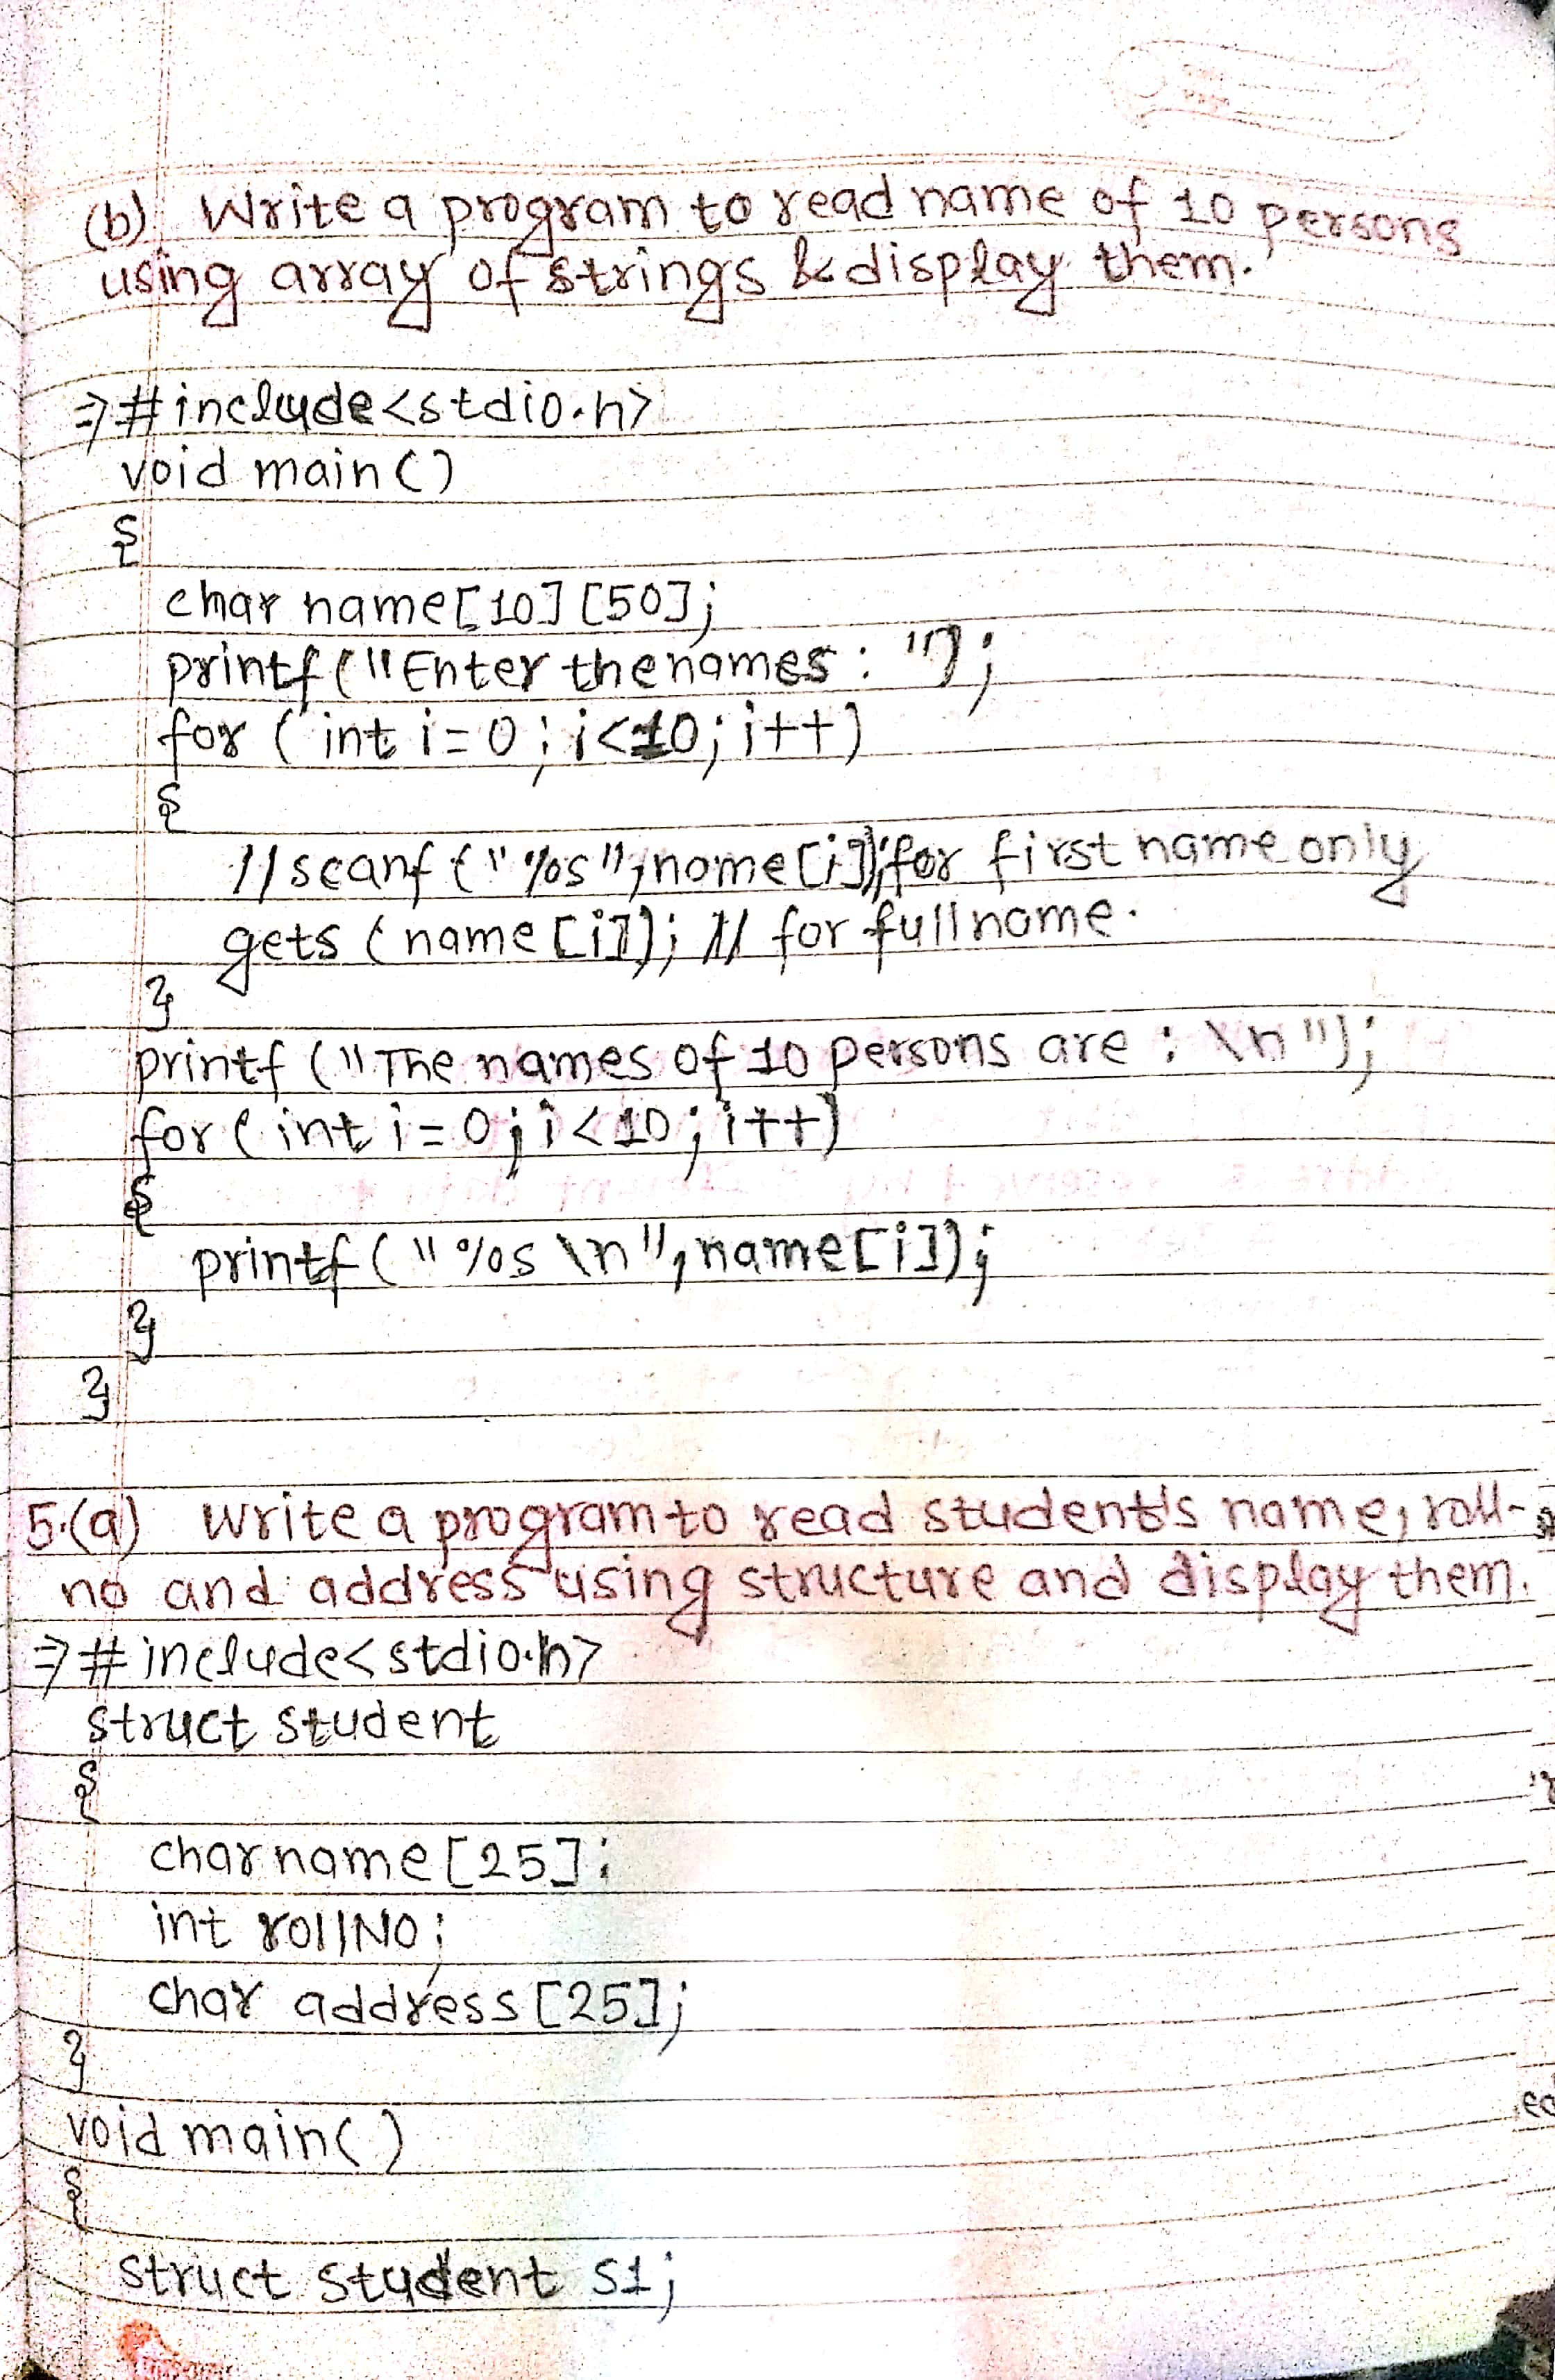 (b) Write a program to read name of 10 persons
using array of strings & display them.
⇒ #include<stdio.h>
void main()
{
char name[10][50];
printf("Enter the names : ");
for (int i=0; i<10; i++)
{
//scanf("%s",name[i]);for first name only
gets (name[i]); // for full name.
}
printf ("The names of 10 persons are : \n");
for(int i=0;i<10;i++)
{
printf("%s \n",name[i]);
}
}
5.(a) Write a program to read student's name, roll-
no and address using structure and display them.
⇒ #include<stdio.h>
struct student
{
char name[25];
int rollNO;
char address[25];
}
void main()
{
struct student s1;